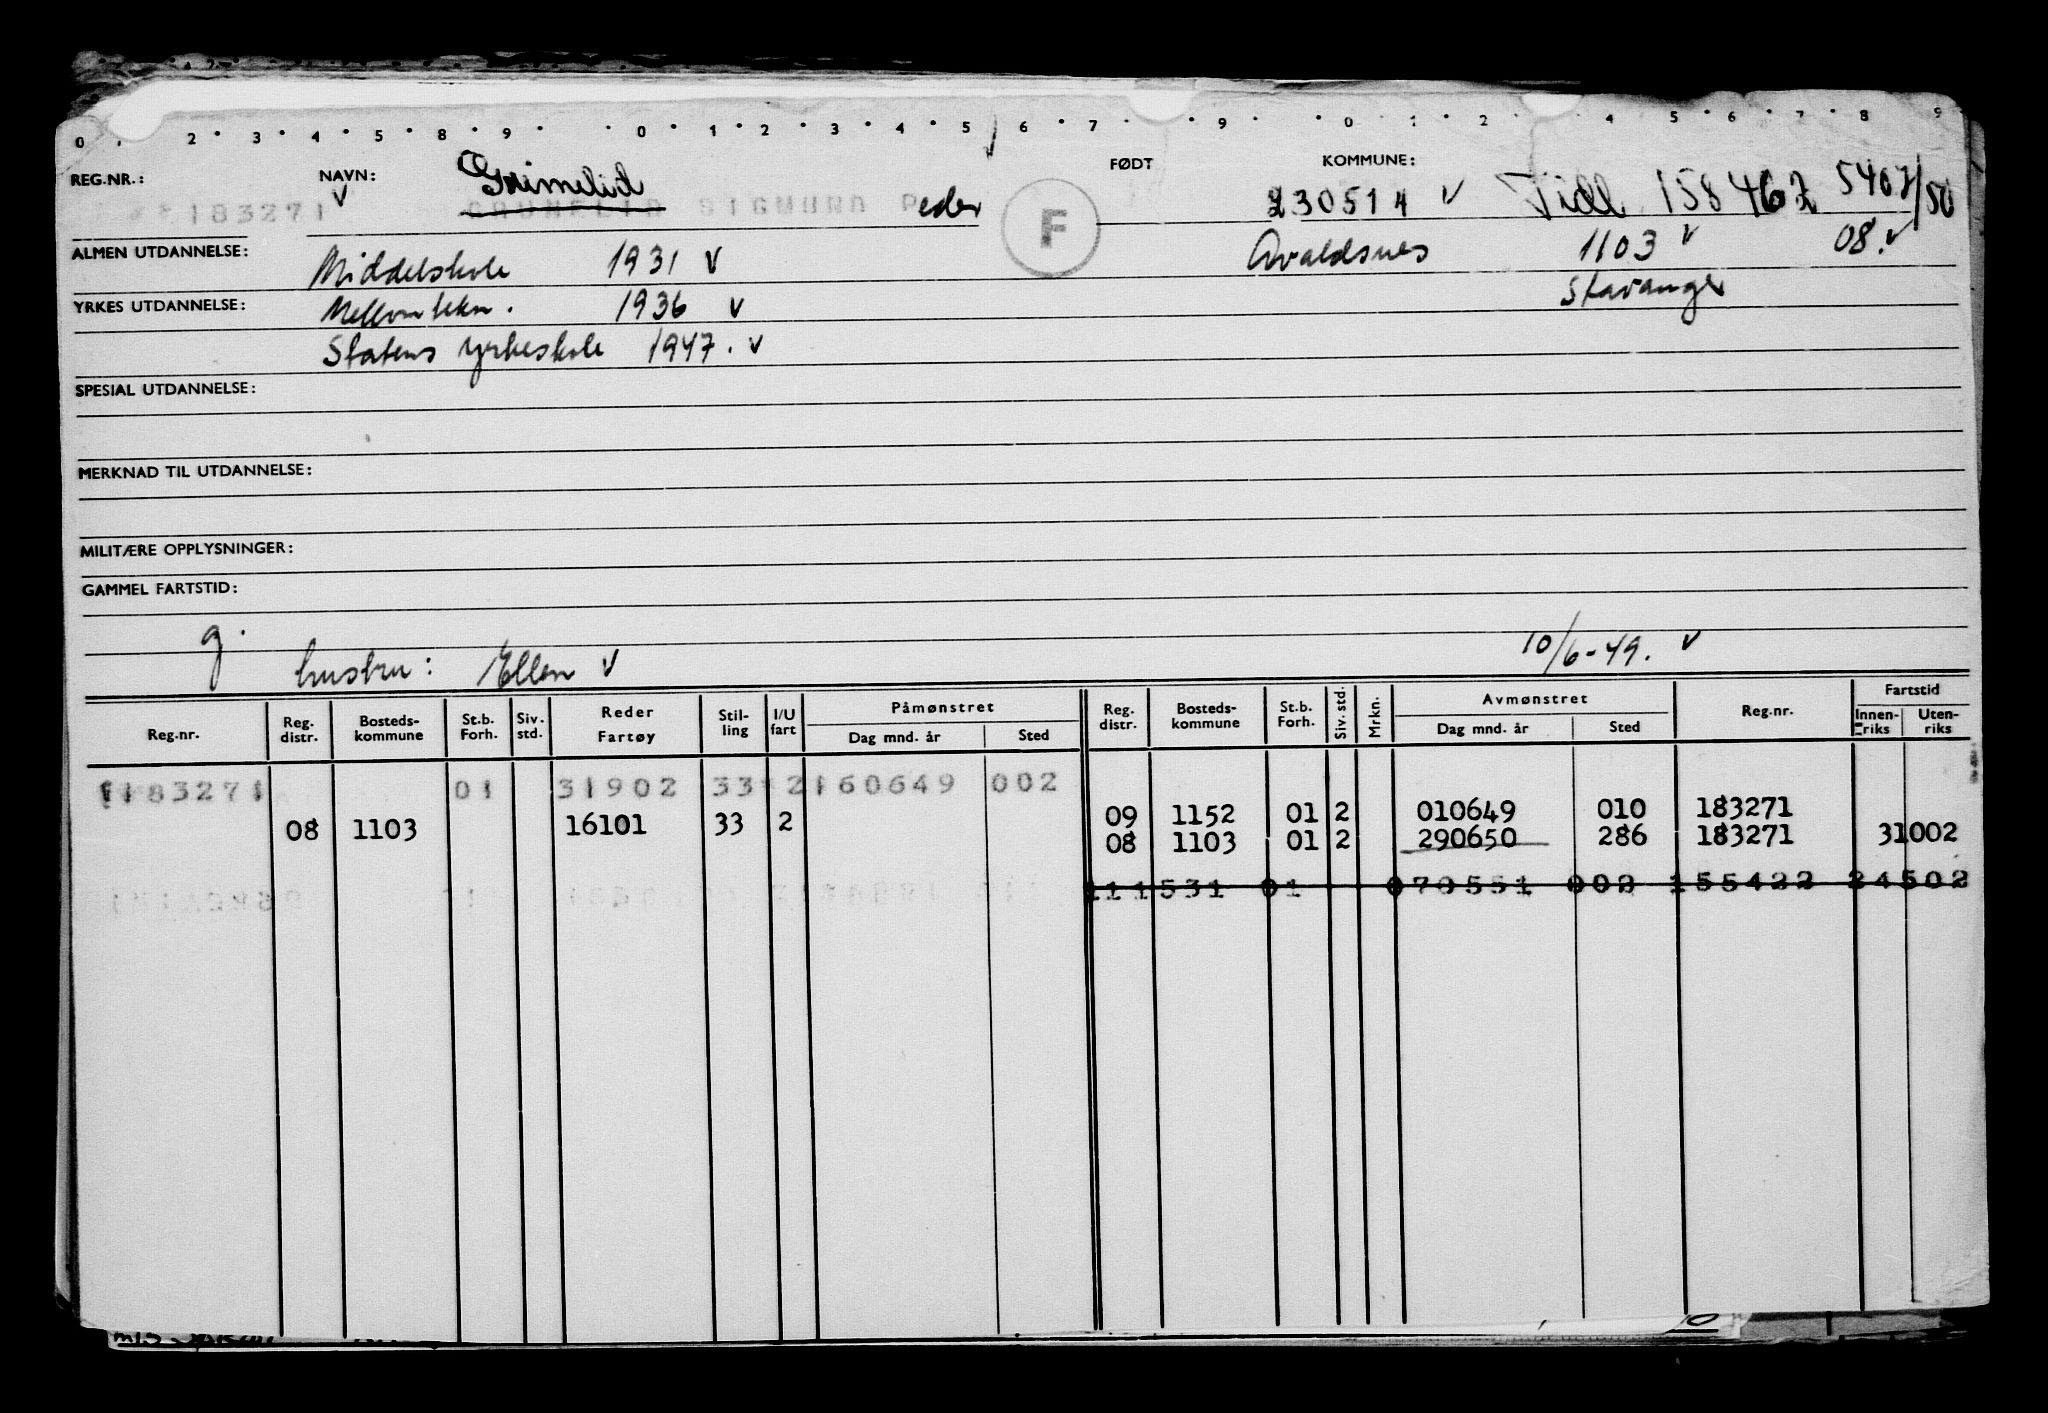 0 . 2 . 3 . 4 . 5 . 8 . 9 . . 0 . 1 . 2 . 3 . 4 . 5 6 . 7 . . 9 . . 0 . 1 . 2 . 4 . 5 . 6 . 7 . 8 . 9
REG.NR.: NAVN: FØDT KOMMUNE:
183271 v Grimelid SIGMUND Peder F 230514 v Tidl 158467 5407/50
ALMEN UTDANNELSE: Middelskole 1931 v Avaldsnes 1103 v 08. v
YRKES UTDANNELSE: Mellomtekn. 1936 v Stavanger
Statens yrkeskole 1947. v
SPESIAL UTDANNELSE:
MERKNAD TIL UTDANNELSE:
MILITÆRE OPPLYSNINGER:
GAMMEL FARTSTID:
g. hustru: Ellen v 10/6-49. v
Reg.nr. Reg. distr. Bosteds-kommune St.b. Forh. Siv. std. Reder Fartøy Stil-ling I/U fart Påmønstret Dag mnd. år Sted Reg. distr. Bosteds-kommune St.b. Forh. Siv. std. Mrkn. Avmønstret Dag mnd. år Sted Reg.nr. Fartstid Innen-riks Uten-riks
183271 01 31902 33 2 160649 002
09 1152 01 2 010649 010 183271
08 1103 16101 33 2
08 1103 01 2 290650 286 183271 31002
111531 01 070551 002 155422 24502